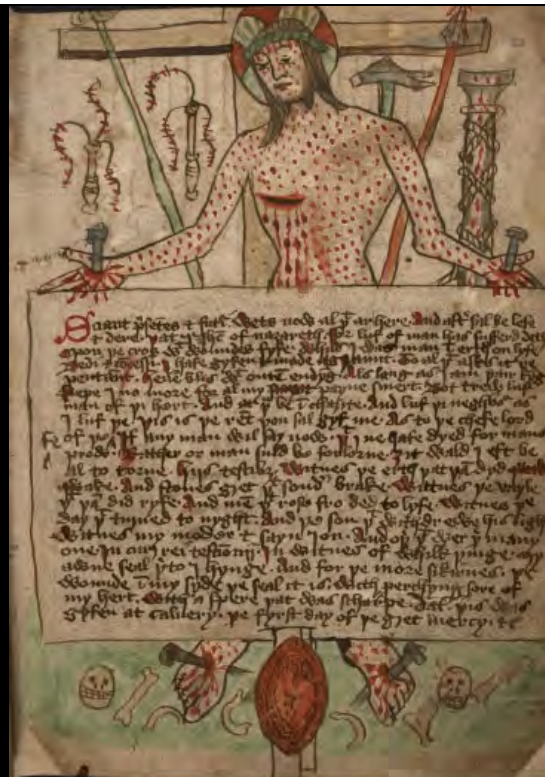 Sciant p̄setes & futͥ. Wets now al þͭ ar here. And aftͬ sal be lefe
& dere. þat I ih̄c of nazareth. for luf of man has sufferd deth
opon þe cros wͭ wowndes fyfe. Whils I was man in erth on lyfe
I hafe gyfen & made graunt. To al þͭ askes it re
pentant. Heven blis wͭ outē endyng. Als lang as I am þair kyng
kepe I no more for al my payne smert. Bot trew lufe
man of þi hort. And at þu be ī charyte. And luf þi neghbor as
I luf þe þis is þe rēt þou sal gyf me. As to þe chefe lord
of fe
If any man wil say now. þͭ I ne hafe dyed for mans
prow. Rather or man suld be forlorne. ȝit wald I eft be
al to torne. Witnes þe erth þat þan dyd
qwake. And stones gret þͭ sondͬ brake. Witnes þe vayle
þͭ þan did ryfe. And men þͭ rose fro ded to lyfe. Witnes þe
day þͭ turned to nyght. And þe son þͭ withdrewe his light
Witnes my moder & saynt Jon. And oþer þͭ wer þͭ many
one. In witnes of whilk þinge. my
awne seal þͬto I hynge. And for þe more sikirnes. þe
wounde ī my syde þe seal it is. With perchyng sore of
my hert. With a spere þat was scharpe. þis was
gyfen at calvery. þe fyrst day of þe gret mercy.